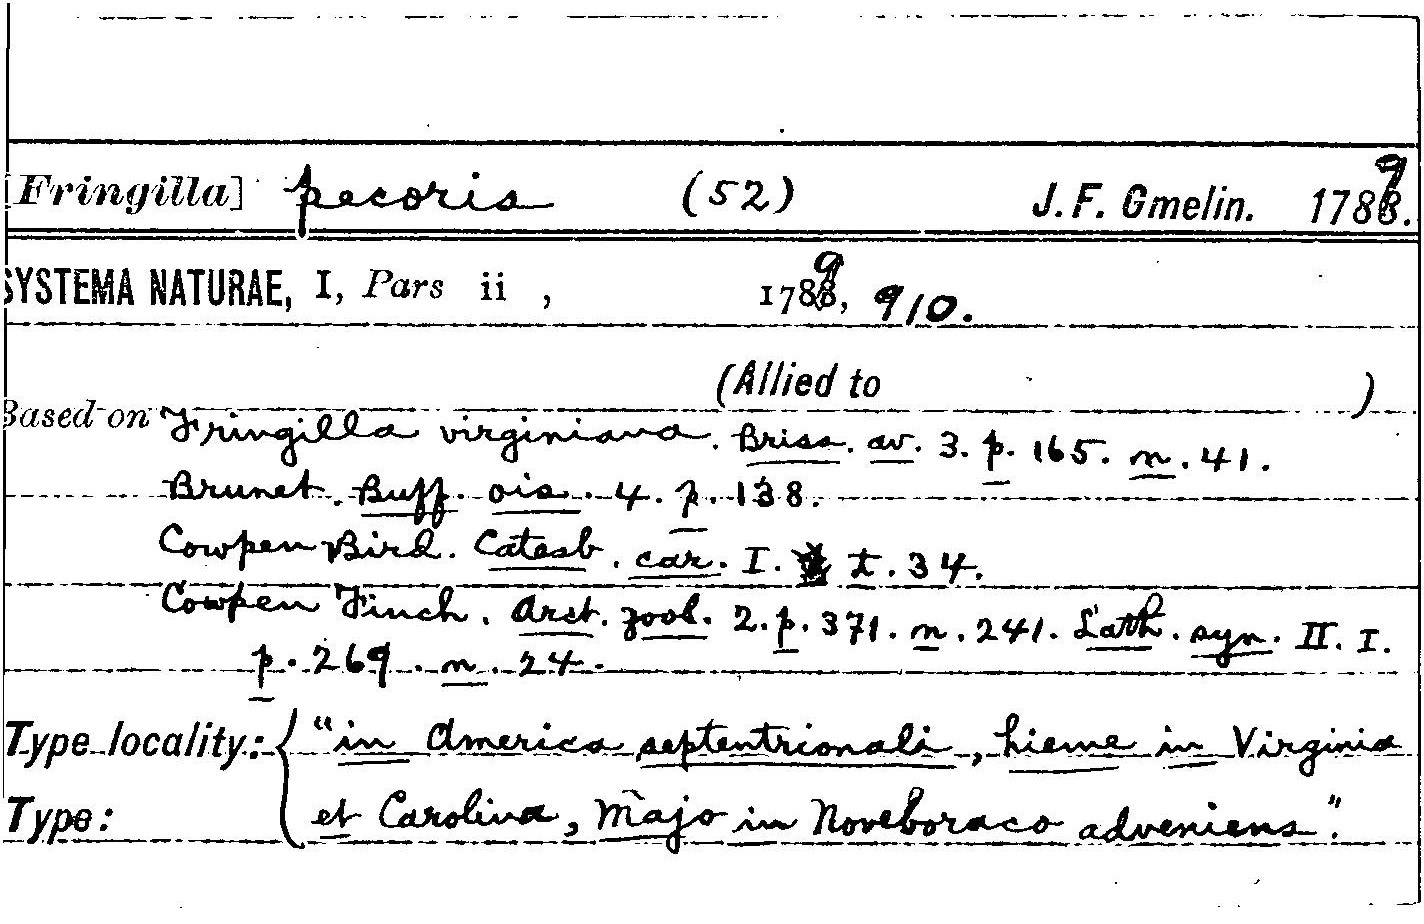 [Fringilla] pecoris (52) J. F. Gmelin. 1789.
SYSTEMA NATURAE, I, Pars ii , 1789, 910.
(Allied to )
Based on Fringilla virginiana. Briss. av. 3. p. 165. n. 41.
Brunet. Buff. ois. 4. p. 138.
Cowpen Bird. Catesb. car. I. t. 34.
Cowpen Finch. Arct. zool. 2. p. 371. n. 241. Lath. syn. II. I.
p. 269. n. 24.
Type locality: "in America septentrionali, hieme in Virginia
Type: et Carolina, Majo in Noveboraco adveniens."